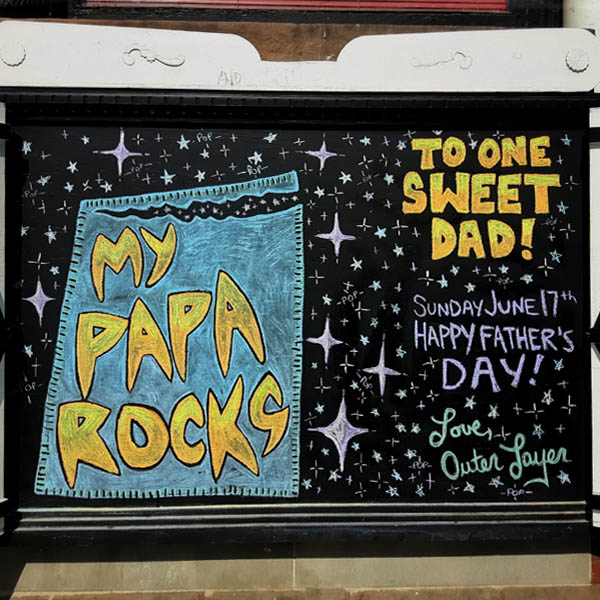 AND
MY
PAPA
ROCKS
TO ONE
SWEET
DAD!
SUNDAY JUNE 17th
HAPPY FATHER'S
DAY!
Love,
Outer Layer
POP
POP
POP
POP
POP
POP
POP